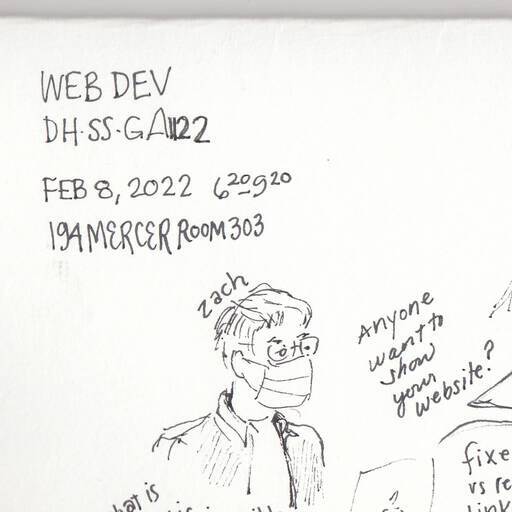 WEB DEV
DH·SS·GA1122
FEB 8, 2022 6²⁰-9²⁰
194 MERCER ROOM 303
zach
Anyone
want to
show
your
website?
fixe
vs re
link
hat is